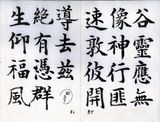 谷靈應無
像神行匪
速敦彼開
導去茲
絕有憑群
生仰福風